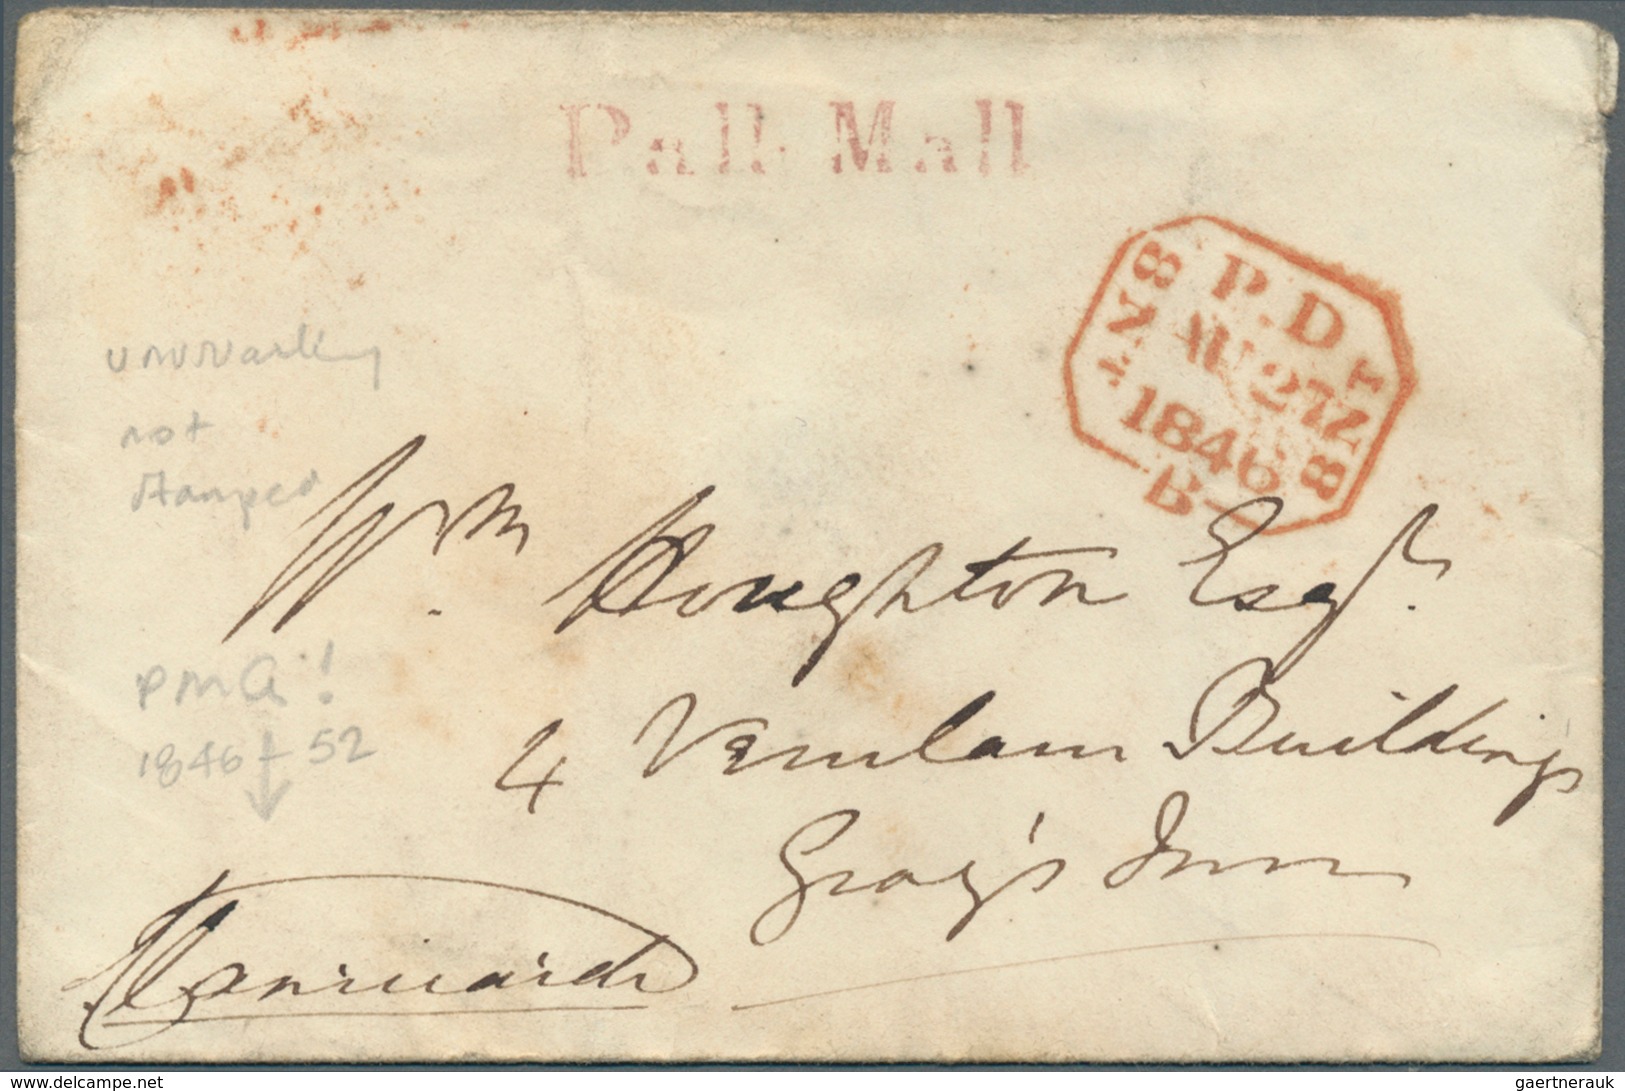 Pall Mall
P.D
8NT
8NT
AU 27
1846
B
not
stamped
Wm Houghton Esqr.
PMG!
1846 - 52
4 Verulam Buildings
Gray's Inn
Clanricarde
www.delcampe.net
gaertnerauk